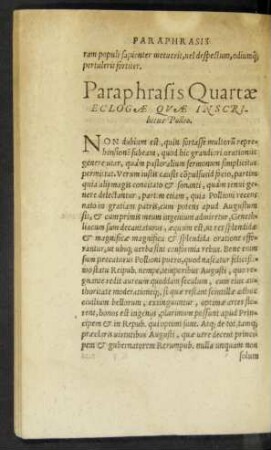 PARAPHRASIS
ram populi sapienter metuerit, vel despectum, odiumq́;
pertulerit fortiter.
Paraphrasis Quartæ
ECLOGÆ QVÆ INSCRI-
bitur Pollio.
NON dubium est, quin fortasse multorū repre-
hensionē subeam, quod hic grandiori orationis
genere utar, quàm pastoralium sermonum simplicitas
permittat. Verum iustis causis cōpulsus id facio, partim
quia alij magis concitato & sonanti, quàm tenui gene-
re delectantur, partim etiam, quia Pollioni
in gratiam
sti, & cum primis meum ingenium admiretur, Geneth-
liacum iam decantaturus, æquum est, ut res splendidæ
& magnificæ magnifica & splendida oratione effe-
rantur, ut ubiq; verba sint conformia rebus. Bene enim
sum precaturus Pollioni
mo statu Reipub. nempe, temporibus Augusti, quo re-
gnante redit aureum quoddam seculum, cum eius au-
thoritate moderationeq́;, si quæ restant scintillæ adhuc
ciuilium bellorum, extinguuntur, optimæ artes floru-
rent, honos est ingenijs plurimum possunt apud Princi-
pem & in Repub. qui optimi sunt. Atq; de
præclaris uirtutibus Augusti, quæ uere decent princi-
pem & gubernatorem Rerumpub. nulla unquam non
solum